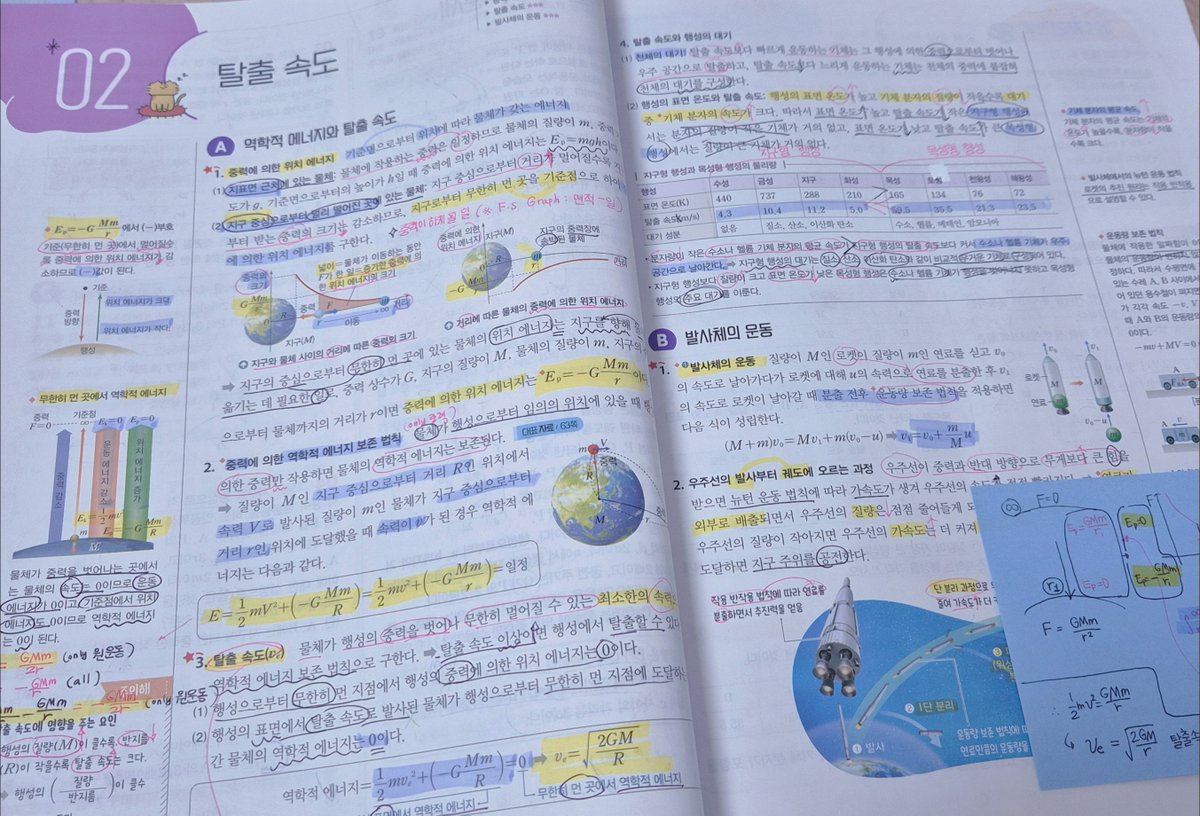 탈출 속도 ★★★
발사체의 운동 ★★★
02
탈출 속도
A 역학적 에너지와 탈출 속도
1. 중력에 의한 위치 에너지 기준면으로부터 위치에 따라 물체가 갖는 에너지
(1) 지표면 근처에 있는 물체: 물체에 작용하는 중력은 일정하므로 물체의 질량이 m, 중력
도가 g, 기준면으로부터의 높이가 h일 때 중력에 의한 위치 에너지는 Eₚ=mgh이다.
(2) 지구 중심으로부터 멀리 떨어진 곳에 있는 물체: 지구 중심으로부터 거리가 멀어질수록 지
부터 받는 중력의 크기는 감소하므로, 지구로부터 무한히 먼 곳을 기준점으로 하여
에 의한 위치 에너지를 구한다.
중력이 하게 될 일 (※ F.s Graph : 면적 = 일)
중력의 크기
넓이= 물체가 이동하는 동안
F가 한 일=증가한 중력에 의
한 위치 에너지의 크기
거리
이동
지구(M)
중력에 의한
위치 에너지
지구(M)
지구의 중력장에
속박된 물체
거리
지구와 물체 사이의 거리에 따른 중력의 크기
거리에 따른 물체의 중력에 의한 위치 에너지
➡ 지구의 중심으로부터 무한히 먼 곳에 있는 물체의 위치 에너지는 지구를 향해
옮기는 데 필요한 일로, 중력 상수가 G, 지구의 질량이 M, 물체의 질량이 m, 지구의
으로부터 물체까지의 거리가 r이면 중력에 의한 위치 에너지는 Eₚ=-G Mm/r
2. 중력에 의한 역학적 에너지 보존 법칙 물체가 행성으로부터 임의의 위치에 있을 때
(only 중력)
대표 자료 / 63쪽
의한 중력만 작용하면 물체의 역학적 에너지는 보존된다.
➡ 질량이 M인 지구 중심으로부터 거리 R인 위치에서
속력 V로 발사된 질량이 m인 물체가 지구 중심으로부터
거리 r인 위치에 도달했을 때 속력이 v가 된 경우 역학적 에
너지는 다음과 같다.
E=1/2 mV²+(-G Mm/R)=1/2 mv²+(-G Mm/r)=일정
3. 탈출 속도(vₑ) 물체가 행성의 중력을 벗어나 무한히 멀어질 수 있는 최소한의 속력으
역학적 에너지 보존 법칙으로 구한다. ➡ 탈출 속도 이상이면 행성에서 탈출할 수 있다
(1) 행성으로부터 무한히 먼 지점에서 행성의 중력에 의한 위치 에너지는 0이다.
(2) 행성의 표면에서 탈출 속도로 발사된 물체가 행성으로부터 무한히 먼 지점에 도달하
간 물체의 역학적 에너지는 0이다.
역학적 에너지=1/2 mvₑ²+(-G Mm/R)=0 ➡ vₑ=√(2GM/R)
무한히 먼 곳에서 역학적 에너지
Eₚ=-G Mm/r 에서 (-)부호
기준(무한히 먼 곳)에서 멀어질수
록 중력에 의한 위치 에너지가 감
소하므로 (-)값이 된다.
기준
중력
방향
위치 에너지가 크다.
위치 에너지가 작다.
행성
무한히 먼 곳에서 역학적 에너지
중력
F=0
기준점
중력 감소
운동 에너지 감소
위치 에너지 증가
M
물체가 중력을 벗어나는 곳에서
는 물체의 속도는 0이므로 운동
에너지가 0이고, 기준점에서 위치
에너지도 0이므로 역학적 에너지
는 0이 된다.
(only 원운동)
(all)
(only 원운동)
탈출 속도에 영향을 주는 요인
행성의 질량(M)이 클수록, 반지름
(R)이 작을수록 탈출 속도는 크다.
➡ 행성의 (질량/반지름)이 클수
4. 탈출 속도와 행성의 대기
(1) 천체의 대기: 탈출 속도보다 빠르게 운동하는 기체는 그 행성에 의한 중력으로부터 벗어나
우주 공간으로 탈출하고, 탈출 속도보다 느리게 운동하는 기체는 천체의 중력에 붙잡혀
천체의 대기를 구성한다.
(2) 행성의 표면 온도와 탈출 속도: 행성의 표면 온도가 높고 기체 분자의 질량이 작을수록 대기
중 기체 분자의 속력이 크다. 따라서 표면 온도가 높고 탈출 속도가 작은 지구형 행성에
서는 분자의 질량이 작은 기체가 거의 없고, 표면 온도가 낮고 탈출 속도가 큰 목성형
행성에서는 질량이 큰 기체가 거의 없다.
지구형 행성 목성형 행성
지구형 행성과 목성형 행성의 물리량
행성 수성 금성 지구 화성 목성 토성 천왕성 해왕성
표면 온도(K) 440 737 288 210 165 134 76 72
탈출 속도(km/s) 4.3 10.4 11.2 5.0 59.5 35.5 21.3 23.5
대기 성분 없음 질소, 산소, 이산화 탄소 수소, 헬륨, 메테인, 암모니아
B 발사체의 운동
1. 발사체의 운동 질량이 M인 로켓이 질량이 m인 연료를 싣고 v₀
의 속도로 날아가다가 로켓에 대해 u의 속력으로 연료를 분출한 후 v₁
의 속도로 로켓이 날아갈 때 분출 전후 운동량 보존 법칙을 적용하면
다음 식이 성립한다.
(M+m)v₀=Mv₁+m(v₀-u) ➡ v₁=v₀+m/M u
로켓
연료
v₀-u
2. 우주선의 발사부터 궤도에 오르는 과정 우주선이 중력과 반대 방향으로 무게보다 큰 힘을
받으면 뉴턴 운동 법칙에 따라 가속도가 생겨 우주선의 속도가 점점 빨라진다.
외부로 배출되면서 우주선의 질량은 점점 줄어들게
우주선의 질량이 작아지면 우주선의 가속도는 더 커져
도달하면 지구 주위를 공전한다.
작용 반작용 법칙에 따라 연료를
분출하면서 추진력을 얻음
단 분리 과정으로
줄여 가속도가 더
❷ 1단 분리
❶ 발사
운동량 보존 법칙에 따
연료만큼의 운동량을
기체 분자의 평균 속력
기체 분자의 평균 속력은 기체의
온도가 높을수록, 분자량이 작을
수록 크다.
발사체에서의 뉴턴 운동 법칙
로켓의 추진 원리는 작용 반작용
으로 설명할 수 있다.
운동량 보존 법칙
-mv+MV=0
∞ F=0
Eₚ=0
r₁
F = GMm/r²
∴ 1/2 mv² = GMm/r
↳ vₑ = √(2GM/r) 탈출속